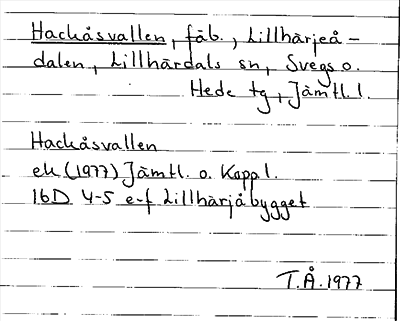 Hackåsvallen, fäb., Lillhärjeå-
dalen, Lillhärdals sn, Svegs o.
Hede tg, Jämtl. l.
Hackåsvallen
ek (1977) Jämtl. o. Kopp l.
16D 4-5 e-f Lillhärjåbygget
T.Å. 1977